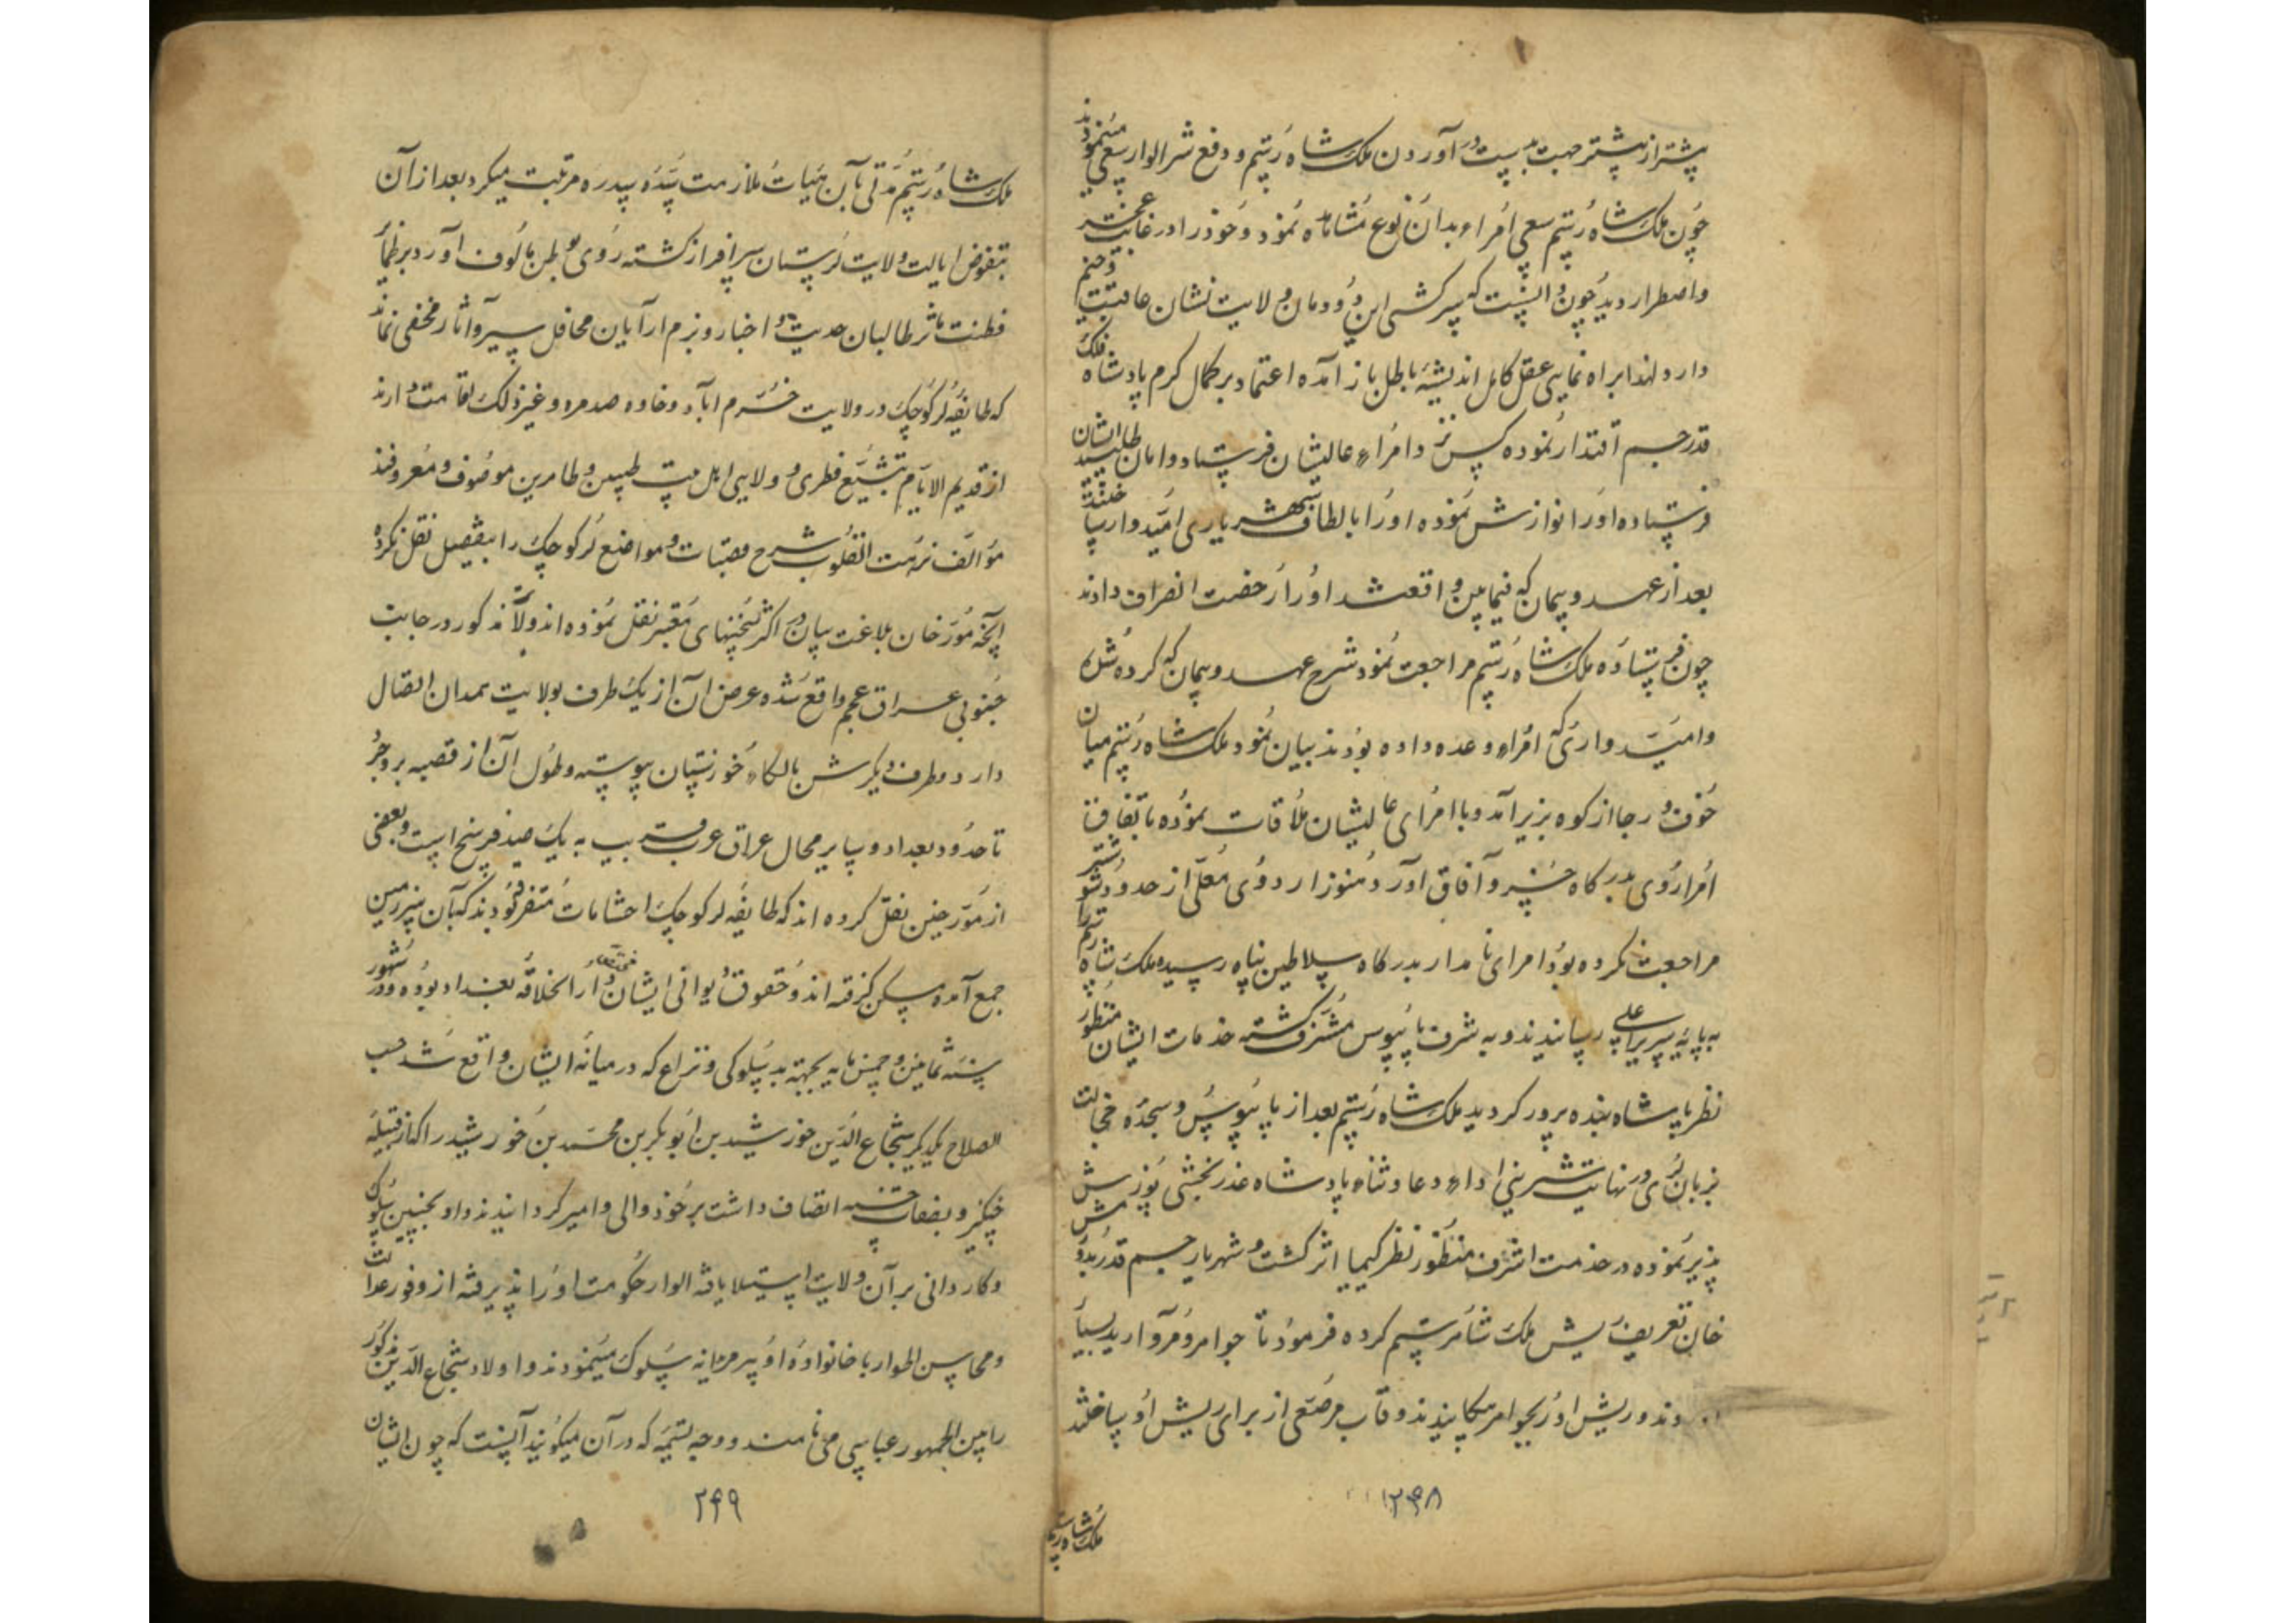 پیشتر از پیشتر جهت بدست در آوردن ملک شاه رستم و دفع شر الوار سعی مینمودند
چون ملک شاه رستم سعی امراء بدان نوع مشاهده نمود و خود را در غایت عجز
و اضطرار دید چون دانست که سرکشی این دودمان ولایت نشان عاقبت وخیم
دارد لهذا براه نمایی عقل کامل اندیشهٔ باطل باز آمده اعتماد بر کمال کرم پادشاه فلک
قدر جم اقتدار نموده کس نزد امراء عالیشان فرستاد و امان طلبید ایشان
فرستاده او را نوازش نموده او را بالطاف شهریاری امیدوار ساختند
بعد از عهد و پیمان که فیمابین واقع شد او را رخصت انصراف دادند
چون فرستاده ملک شاه رستم مراجعت نمود شرح عهد و پیمان که کرده شد
و امیدواری که امراء وعده داده بودند بیان نمود ملک شاه رستم میان
خوف و رجا از کوه بزیر آمد و با امرای عالیشان ملاقات نموده باتفاق
امرا روی بدرگاه خسرو آفاق آورد هنوز اردوی معلی از حدود شوشتر
مراجعت نکرده بود امرای نامدار بدرگاه سلاطین پناه رسیده ملک شاه رستم را
به پایهٔ سریر اعلی رسانیدند و به شرف پایبوس مشرف گشته خدمات ایشان منظور
نظر پادشاه بنده پرور گردید ملک شاه رستم بعد از پایبوس و سجده خجالت
بزبان لری در نهایت شیرینی اداء دعا و ثناء پادشاه عذر بخشی پوزش
پذیر نموده در خدمت اشرف منظور نظر کیمیا اثر گشت و شهریار جم قدر
خان تعریف ریش ملک شاه رستم کرده فرمود تا جواهر و مروارید بسیار
وردند و ریش او را بجواهر مکللا نیدند و قاب مرصعی از برای ریش او ساختند
ملک شاه رستم
۲۴۸
ملک شاه رستم مدتی بآن هیات ملازمت سده سدره مرتبت میکرد بعد از آن
بتفویض ایالت ولایت لرستان سرافراز گشته روی بوطن مالوف آورد بر ضمایر
فطنت مآثر طالبان حدیث و اخبار و بزم آرایان محافل سیر و آثار مخفی نماند
که طایفهٔ لر کوچک در ولایت خرم آباد و خاوه صدمره و غیر ذلک اقامت دارند
از قدیم الایام بتشیع فطری و ولایی اهل بیت طیبین و طاهرین موصوف و معروفند
مؤالف نزهت القلوب شرح قصبات و مواضع لر کوچک را بتفصیل نقل کرده
آنچه مورخان بلاغت بیان در اکثر نسخنهای معتبر نقل نموده اند ولا مذکور در جانب
جنوبی عراق عجم واقع شده عرض آن از یک طرف بولایت همدان اتصال
دارد و طرف دیگرش بالکاء خوزستان پیوسته و طول آن از قصبه بروجرد
تا حدود بغداد و سایر محال عراق عرب قریب به یک صد فرسخ است و بعضی
از مورخین نقل کرده اند که طایفه لر کوچک احشامات متفرقه بودند که بآن سرزمین
جمع آمده مسکن گزفته اند و حقوق دیوانی ایشان مختص دار الخلافه بغداد بوده و در شهور
سنه ثمانین و خمس مایه بجهة بد سلوکی و نزاع که در میانه ایشان واقع شد حسب
الصلاح یکدیگر شجاع الدین خورشید بن ابو بکر بن محمد بن خورشید را که از قبیله
جنگیز و بصفات حسنه اتصاف داشت بر خود والی و امیر گردانیدند و او بحسن سلوک
و کاردانی بر آن ولایت استیلا یافته الوار حکومت او را پذیرفته از وفور عدالت
و محاسن اطوار با خانواده او پیر مریدانه سلوک مینمودند و اولاد شجاع الدین مذکور
را بین الجمهور عباسی می نامند و وجه تسمیه که در آن میگویند آنست که چون ایشان
۲۴۹